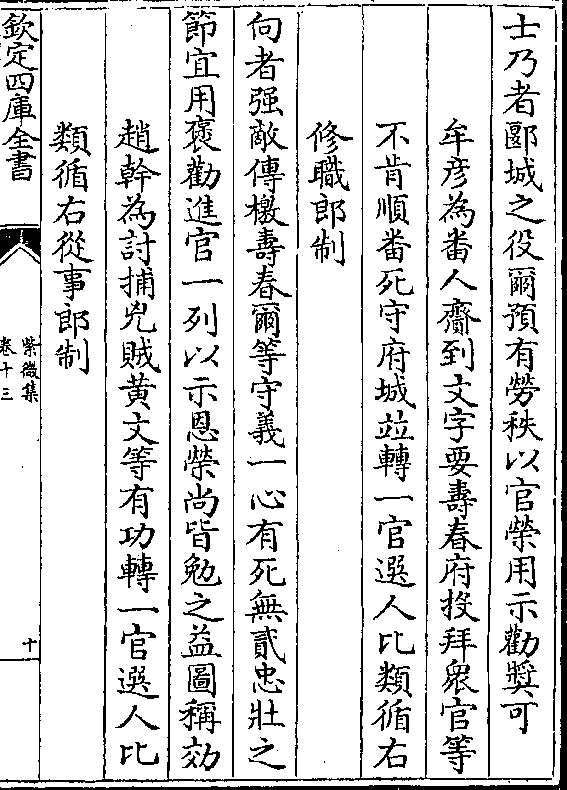 士乃者郾城之役爾預有勞秩以官榮用示勸奬可
牟彦為畨人齎到文字要壽春府投拜衆官等
不肯順畨死守府城竝轉一官選人比類循右
修職郎制
向者强敵傳檄壽春爾等守義一心有死無貳忠壯之
節宜用褒勸進官一列以示恩榮尚皆勉之益圖稱効
趙幹為討捕兇賊黄文等有功轉一官選人比
類循右從事郎制
欽定四庫全書
紫微集
卷十三
十